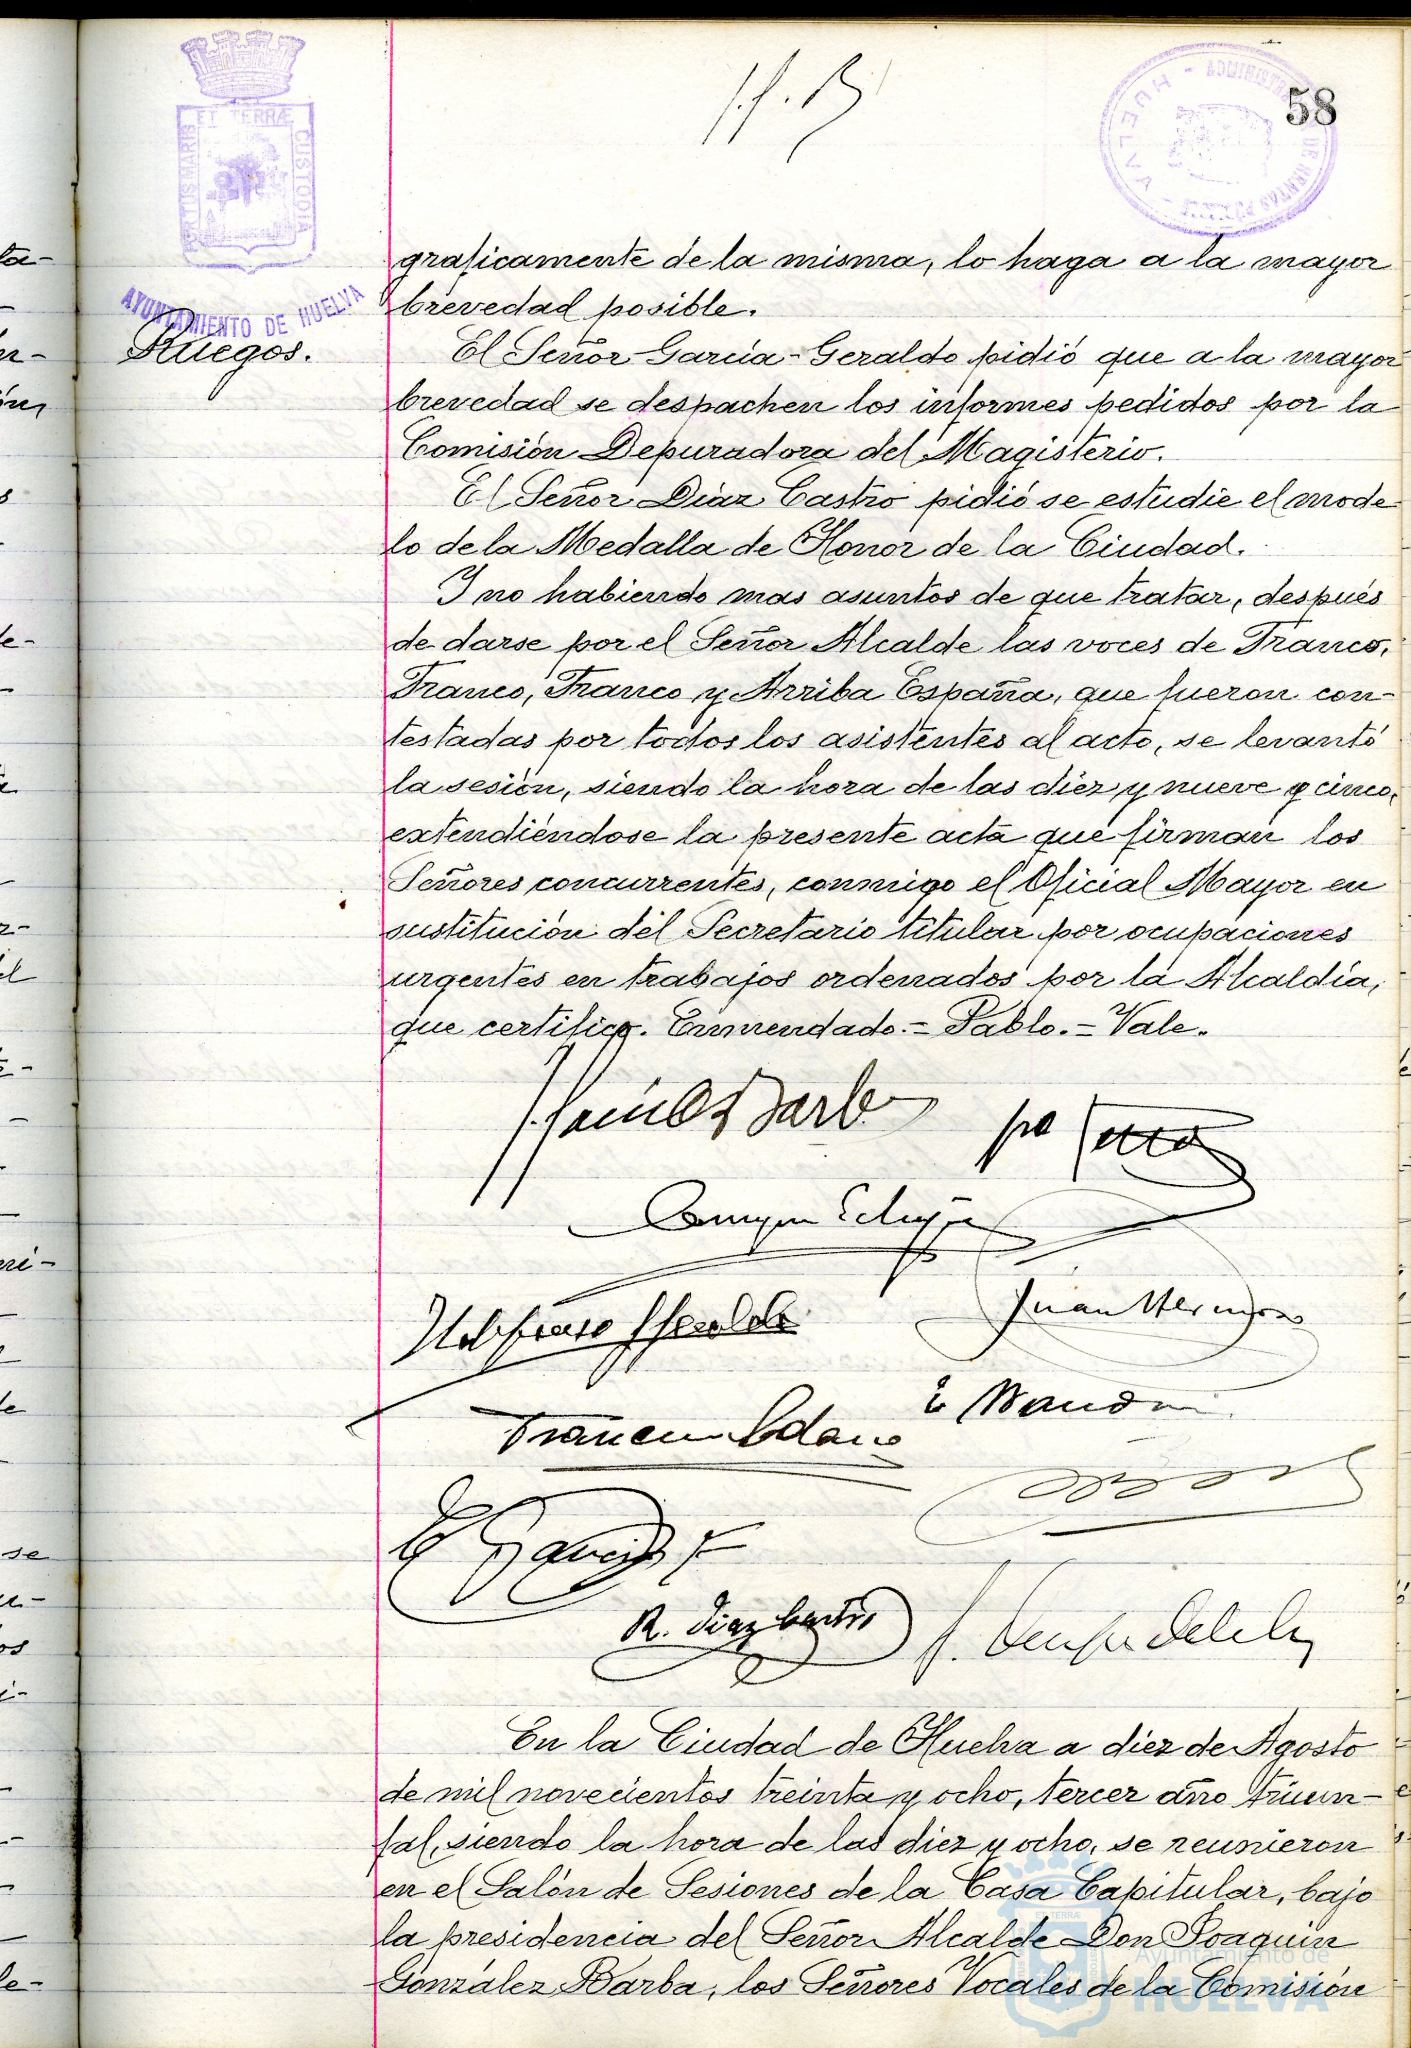 58
ET TERRÆ
PORTUS MARIS
CUSTODIA
AYUNTAMIENTO DE HUELVA
HUELVA
Ruegos.
graficamente de la misma, lo haga a la mayor
brevedad posible.
El Señor García-Geraldo pidió que a la mayor
brevedad se despachen los informes pedidos por la
Comisión Depuradora del Magisterio.
El Señor Díaz Castro pidió se estudie el mode-
lo de la Medalla de Honor de la Ciudad.
Y no habiendo mas asuntos de que tratar, después
de darse por el Señor Alcalde las voces de Franco,
Franco, Franco y Arriba España, que fueron con-
testadas por todos los asistentes al acto, se levantó
la sesión, siendo la hora de las diez y nueve y cinco,
extendiéndose la presente acta que firman los
Señores concurrentes, conmigo el Oficial Mayor en
sustitución del Secretario titular por ocupaciones
urgentes en trabajos ordenados por la Alcaldía,
que certifico. Enmendado.=Pablo.=Vale.
Juan
R. Diaz Castro
En la Ciudad de Huelva a diez de Agosto
de mil novecientos treinta y ocho, tercer año triun-
fal, siendo la hora de las diez y ocho, se reunieron
en el Salón de Sesiones de la Casa Capitular, bajo
la presidencia del Señor Alcalde Don Joaquín
González Barba, los Señores Vocales de la Comisión
Ayuntamiento de
HUELVA